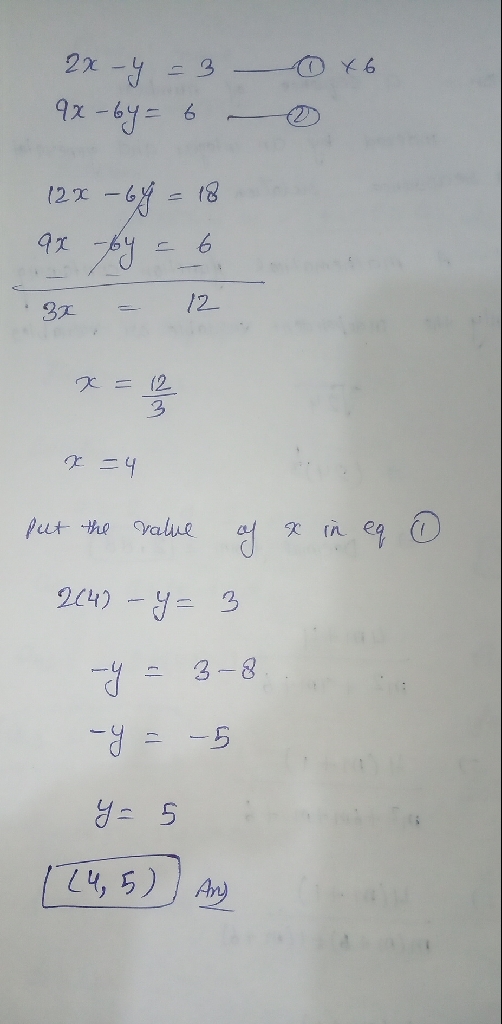 2x - y = 3 —— ① × 6
9x - 6y = 6 —— ②
12x - 6y = 18
9x - 6y = 6
3x = 12
x = 12/3
x = 4
Put the value of x in eq ①
2(4) - y = 3
-y = 3 - 8
-y = -5
y = 5
(4, 5) Ans